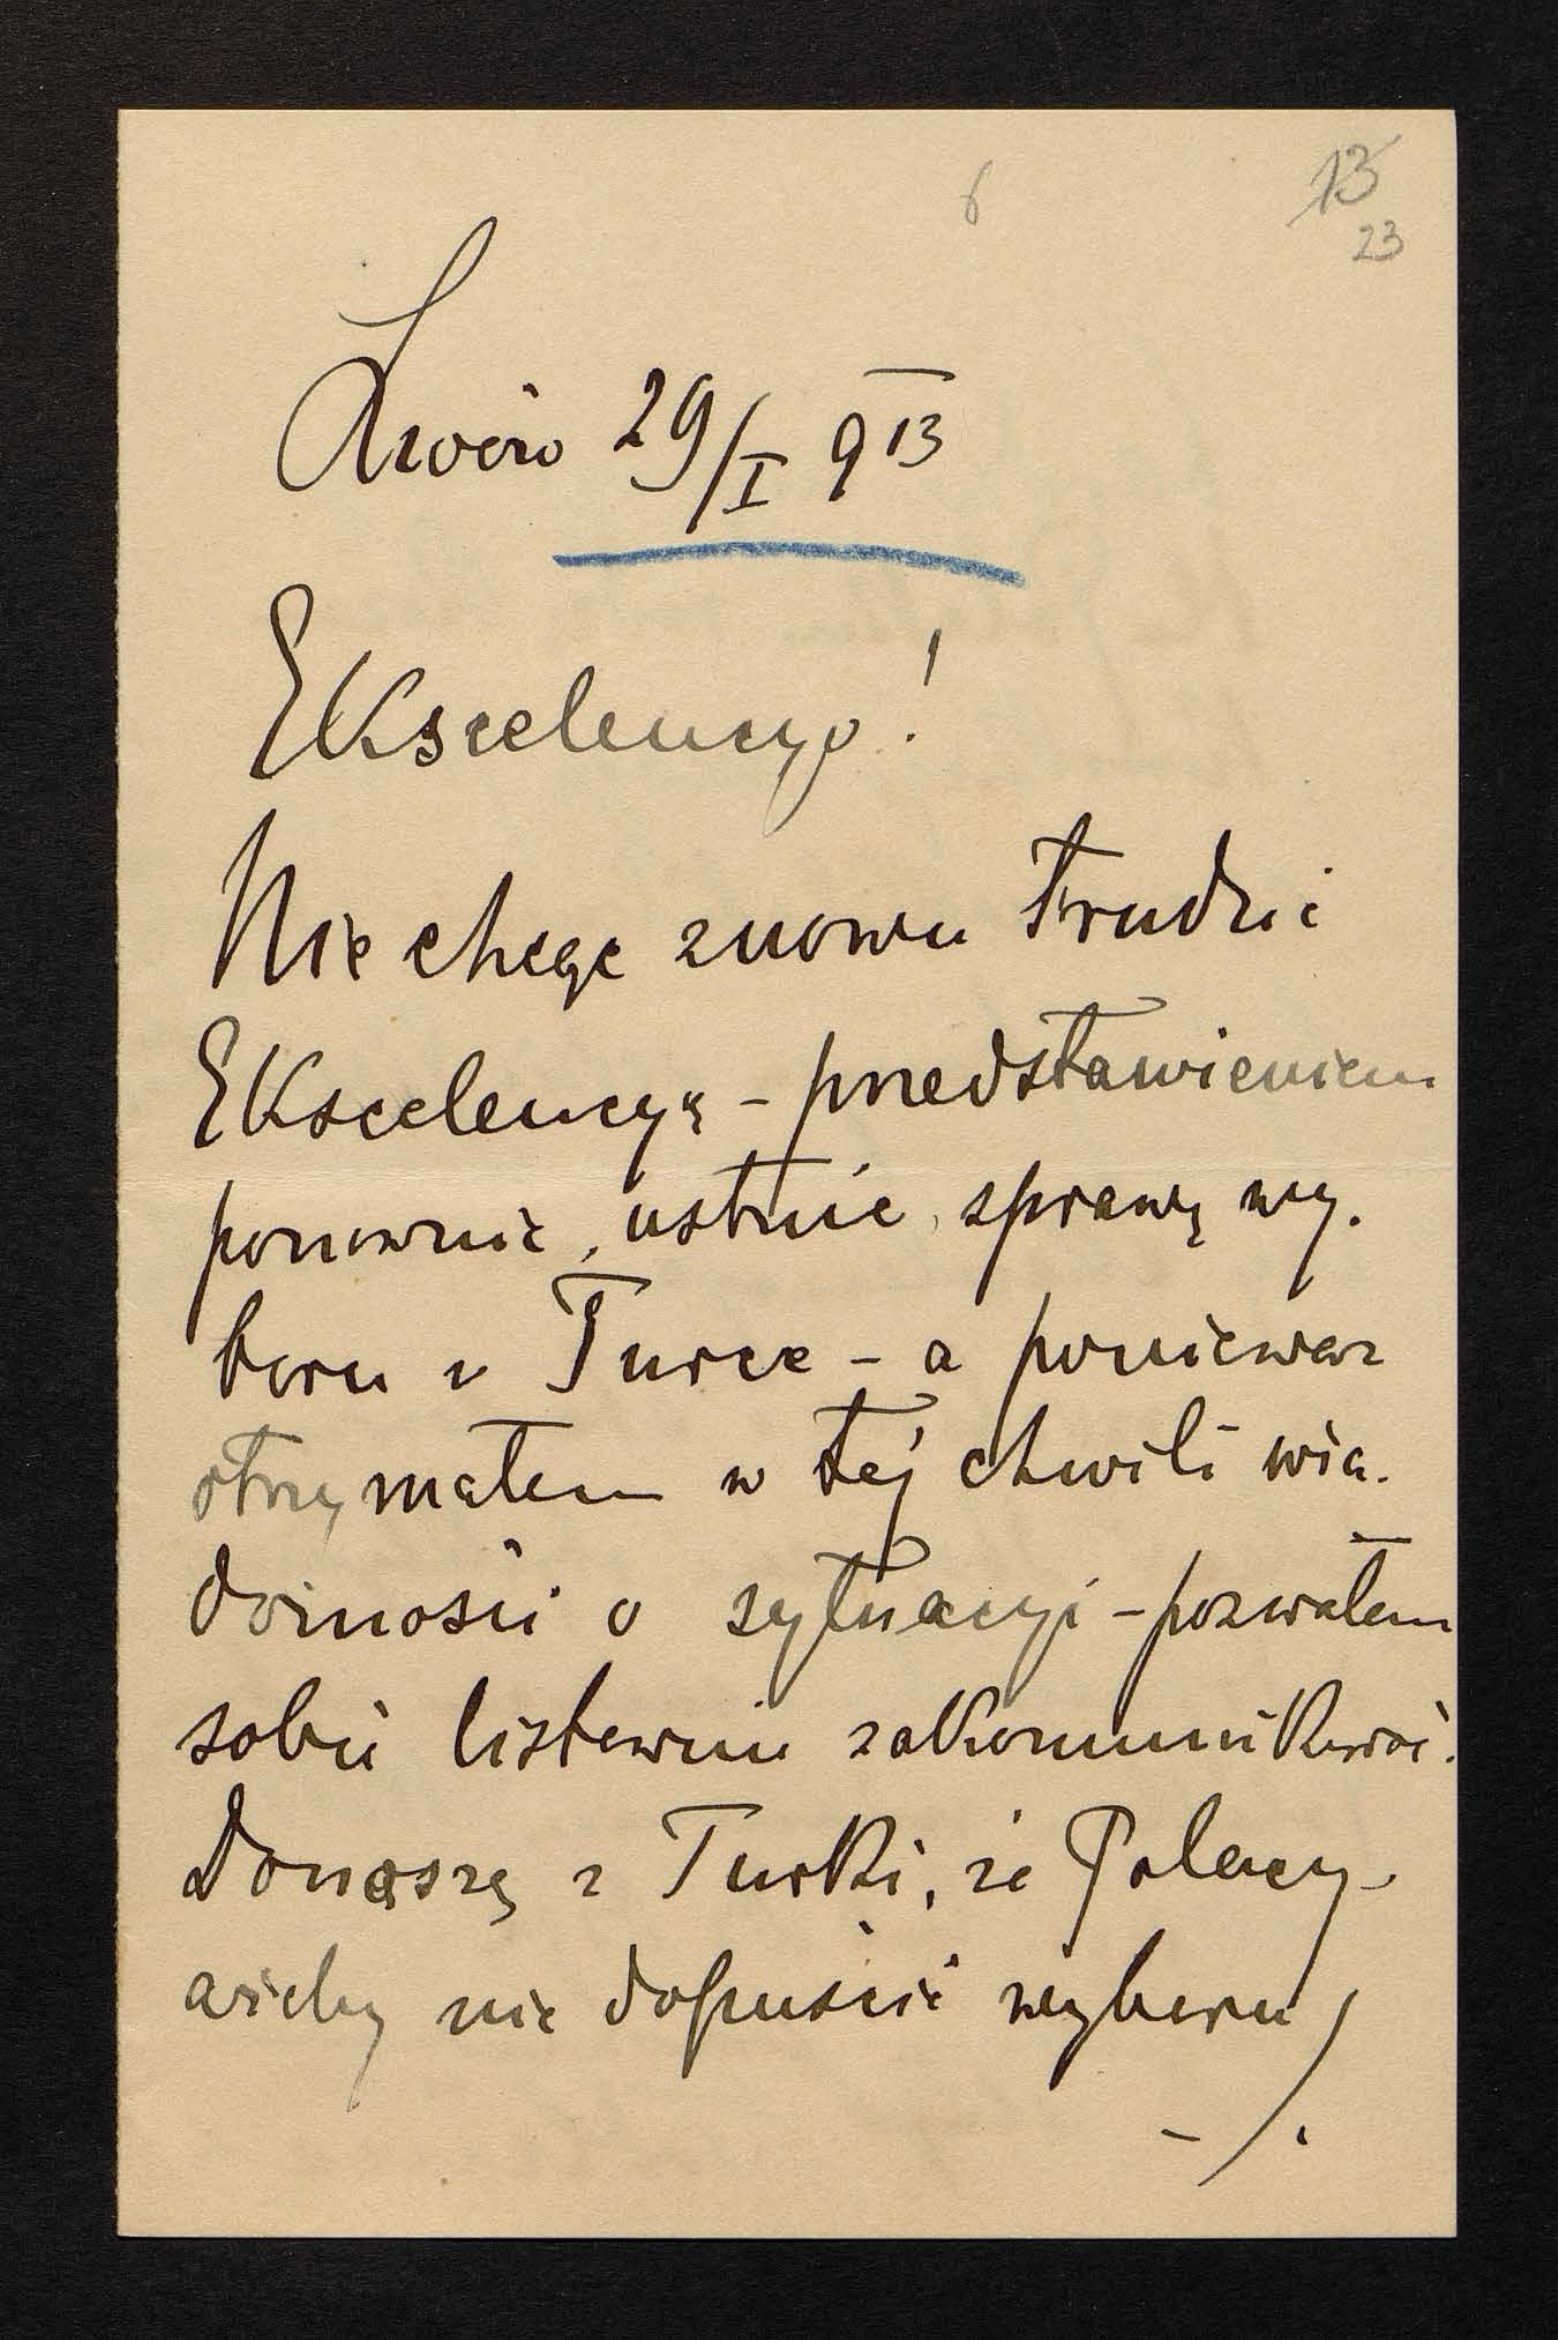 6
13
23
Lwów 29/I 913
Ekscelencyo!
Nie chcąc znowu trudzić
Ekscelencyę - przedstawieniem
ponownie, ustnie, sprawę wy-
boru v Turce - a ponieważ
otrzymałem w tej chwili wia-
domości o sytuacyi - pozwałem
sobie listownie zakomunikować.
Donąszą z Turki, że Polacy
ażeby nie dopuścić wyboru
-/.